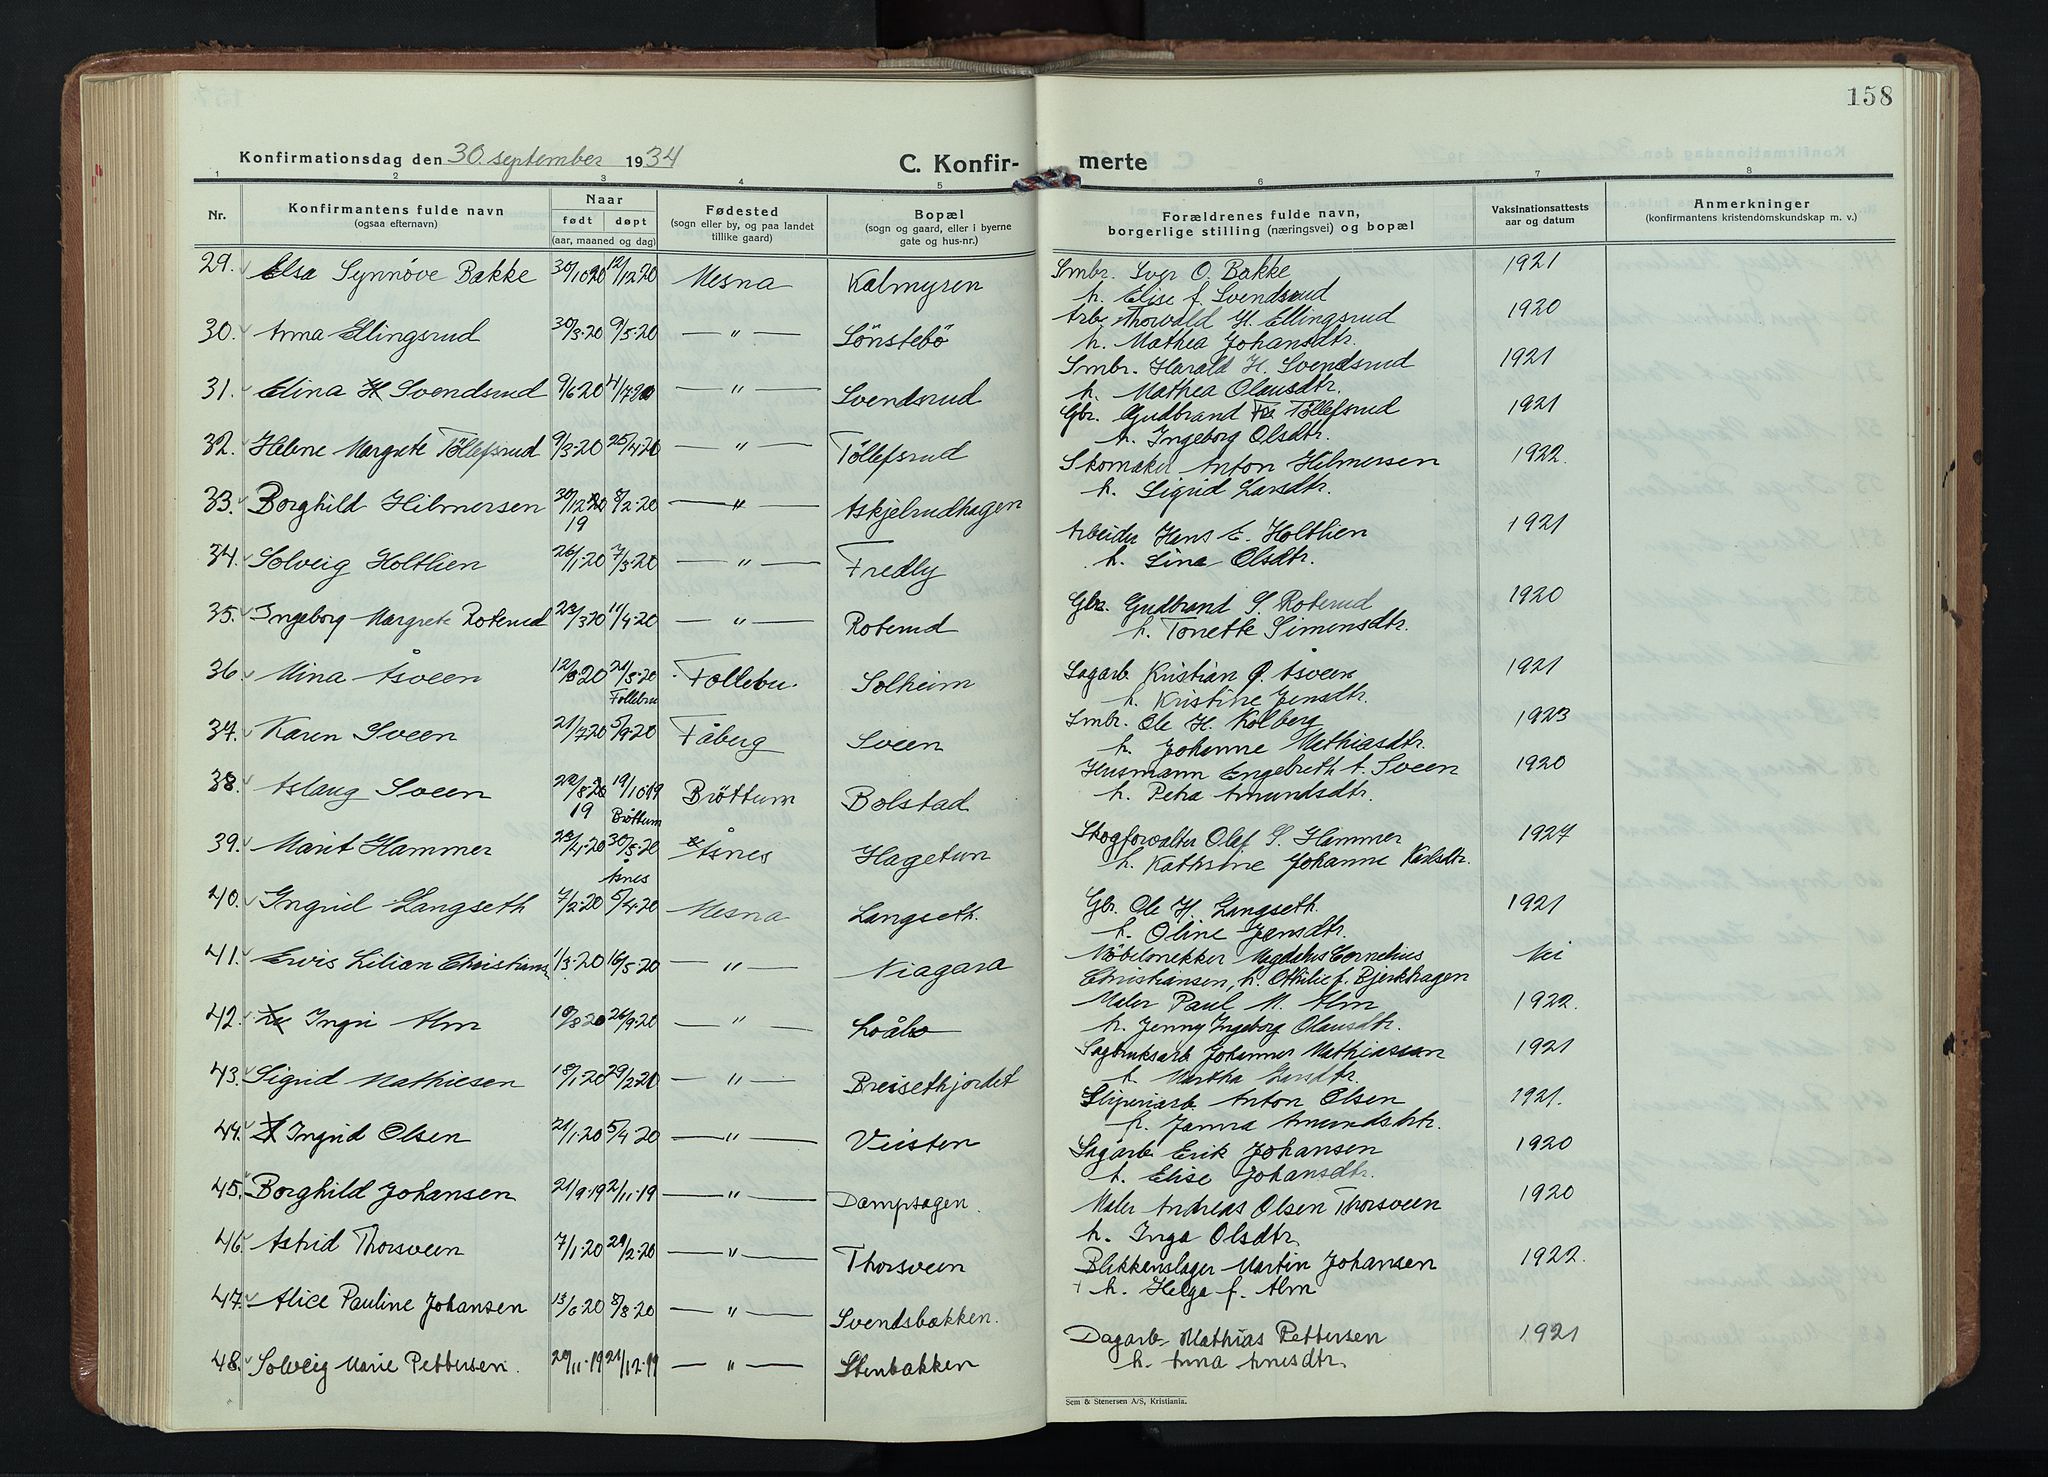 158
Konfirmationsdag den 30. september 1934
C. Konfir- merte
1 2 3 4 5 6 7 8
Nr. Konfirmantens fulde navn (ogsaa efternavn) Naar født døpt (aar, maaned og dag) Fødested (sogn eller by, og paa landet tillike gaard) Bopæl (sogn og gaard, eller i byerne gate og hus-nr.) Forældrenes fulde navn, borgerlige stilling (næringsvei) og bopæl Vaksinationsattests aar og datum Anmerkninger (konfirmantens kristendomskundskap m. v.)
29. Elsa Synnøve Bakke 30/10 20 12/12 20 Mesna Kalmyren Smbr. Iver O. Bakke 1921
h. Elise f. Svendsrud
30. Anna Ellingsrud 30/3·20 9/5·20 — " — Sönstebö Arb. Thorvald H. Ellingsrud 1920
h. Mathea Johansdtr.
31. Elina H Svendsrud 9/6 20 4/7 20 — " — Svendsrud Smbr. Harald H. Svendsrud 1921
h. Mathea Olausdtr.
32. Helene Margrete Töllefsrud 9/3·20 25/4·20 — " — Töllefsrud Gbr. Gudbrand Töllefsrud 1921
h. Ingeborg Olsdtr.
33. Borghild Hilmersen 30/12 19 8/2·20 — " — Askjelrudhagen Skomaker Anton Hilmersen 1922.
h. Sigrid Larsdtr.
34. Solveig Holtlien 26/1·20 7/3·20 — " — Fredly Arbeider Hans E. Holtlien 1921
h. Lina Olsdtr.
35. Ingeborg Margrete Roterud 23/3 20 11/4·20 — " — Roterud Gbr. Gudbrand S. Roterud 1920
h. Tonette Simensdtr.
36. Mina Åsveen 12/3 20 21/5·20 Follebu Follebu Solheim Sagarb. Kristian O. Åsveen 1921
h. Kristine Jensdtr.
37. Karen Sveen 21/7 20 5/9·20 Fåberg Sveen Smbr. Ole H. Kolberg 1923
h. Johanne Mathiasdtr.
38. Aslaug Sveen 22/8 19 19/10·19 Bröttum Bröttum Bolstad Husmann Engebreth A. Sveen 1920
h. Petra Amundsdtr.
39. Marit Hammer 29/4·20 30/5·20 Åsnes Åsnes Hagetun Skogforvalter Olaf S. Hammer 1927
h. Kathrine Johanne Karlsdtr.
40. Ingrid Langseth 7/2·20 5/4·20 Mesna Langseth. Gbr. Ole H. Langseth. 1921
h. Oline Jensdtr.
41. Ervis Lilian Christians. 1/3·20 16/5·20 — " — Niagara Möbelsnekker Magdalus Cornelius Nei
Christiansen, h. Othilie f. Bjerkhagen
42. Ingri Alm 18/8 20 26/9·20 — " — Loålo Maler Paul M. Alm 1922.
h. Jenny Ingeborg Olausdtr.
43. Sigrid Mathiesen 18/1·20 29/2·20 — " — Breisethjordet Sagbruksarb. Johannes Mathiassen 1921
h. Martha Larsdtr.
44. Ingrid Olsen 21/1·20 5/4 20 — " — Veisten Sliperiarb. Anton Olsen 1921.
h. Janna Amundsdtr.
45. Borghild Johansen 21/9·19 2/11·19 — " — Dampsagen. Sagarb. Erik Johansen 1920
h. Elise Johansdtr.
46. Astrid Thorsveen 7/1·20 29/2·20 — " — Thorsveen Maler Andreas Olsen Thorsveen 1920
h. Inga Olsdtr.
47. Alice Pauline Johansen 13/6·20 8/8·20 — " — Svendsbakken. Blikkenslager Martin Johansen 1922.
† h. Helga f. Alm
48. Solveig Marie Pettersen. 20/11·19 21/12·19 — " — Stenbakken Dagarb. Mathias Pettersen 1921
h. Anna Arnesdtr.
Sem & Stenersen A/S, Kristiania.